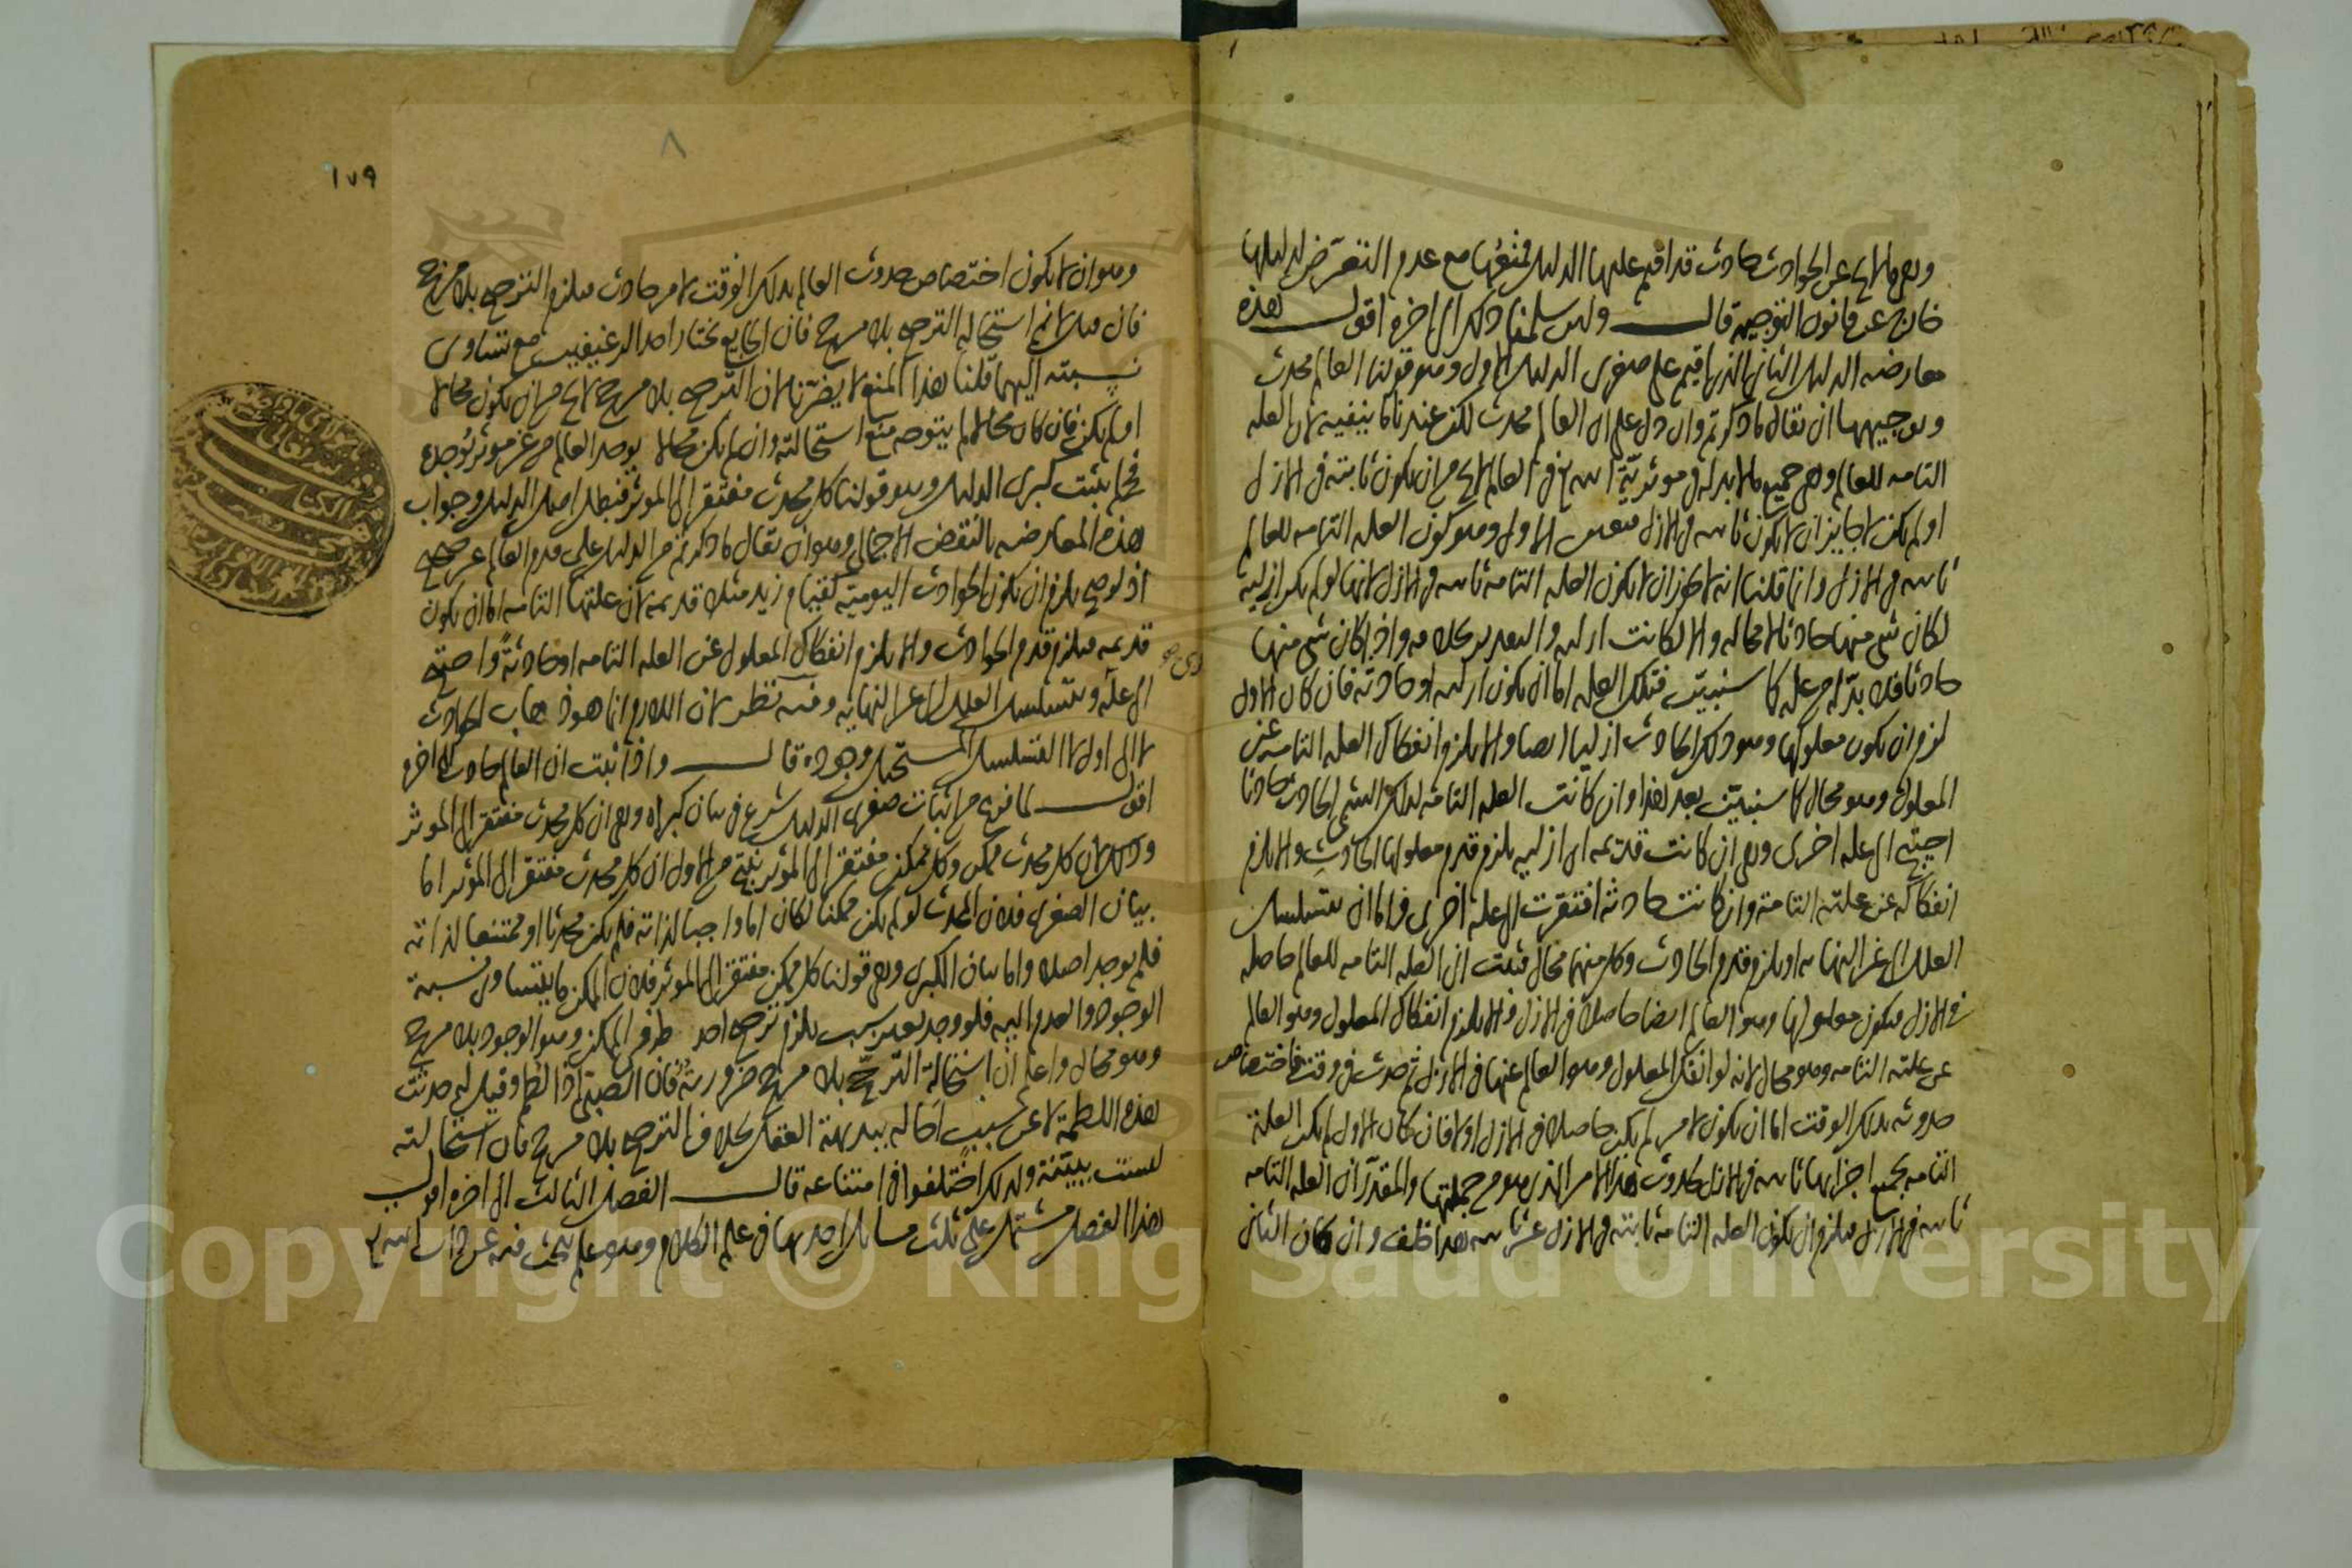 وهي ما لا يخ عن الحوادث حادث قد اقيم عليها الدليل فمنعها مع عدم التعرض لدليلها
خارج عن قانون التوجيه قال ولئن سلمنا ذلك الى اخره اقول هذه
معارضه الدليل الثاني الذي اقيم على صغرى الدليل الاول وهو قولنا العالم محدث
وتوجيهها ان يقال ما ذكرتم وان دل على ان العالم محدث لكن عندنا ما ينفيه لان العله
التامه للعالم وهي جميع ما لا بد له في موثرية الله تع في العالم لا يخ من ان يكون ثابتة في الازل
او لم يكن لا جايز ان لا يكون ثابته في الازل فتعين الاول وهو كون العله التامه للعالم
ثابته في الازل وانما قلنا انه لا يجوز ان لا يكون العله التامه ثابته في الازل لانها لو لم يكن ازلية
لكان شي منها حادثا لا محاله والا لكانت ازليه والتقدير بخلافه واذا كان شي منها
حادثا فلا بد له من عله كما سنبين فتلك العله اما ان يكون ازليه او حادثه فان كان الاول
لزم ان يكون معلولها وهو ذلك الحادث ازليا ايضا والا يلزم انفكاك العله التامه عن
المعلول وهو محال كما سنبين بعد هذا وان كانت العله التامه لذلك الشي الحادث حادثا
احتيج الى عله اخرى وهي ان كانت قديمه اى ازليه يلزم قدم معلولها الحادث والا يلزم
انفكاكه عن علته التامة وان كانت حادثه افتقرت الى عله اخرى فاما ان يتسلسل
العلل الى غير النهايه او يلزم قدم الحادث وكل منهما محال فثبت ان العله التامه للعالم حاصله
في الازل فيكون معلولها وهو العالم ايضا حاصلا في الازل والا يلزم انفكاك المعلول وهو العالم
عن علته التامه وهو محال لانه لو انفك المعلول وهو العالم عنها في الازل ثم حدث في وقت فاختصاص
حدوثه بذلك الوقت اما ان يكون لامر لم يكن حاصلا في الازل او لا فان كان الاول لم يكن العلة
التامه بجميع اجزايها ثابته في الازل لحدوث هذا الامر الذي هو من جملتها والمقدر ان العله التامه
ثابته في الازل فيلزم ان يكون العله التامه ثابته في الازل غير ثابته هذا خلف وان كان الثاني
١٧٩
٨
وهو ان لا يكون اختصاص حدوث العالم بذلك الوقت لامر حادث فيلزم الترجيح بلا مرجح
فان قيل لا نم استحاله الترجيح بلا مرجح فان الجايع يختار احد الرغيفين مع تساوى
نسبته اليهما قلنا هذا المنع لا يضرنا لان الترجيح بلا مرجح لا يخ من ان يكون محالا
او لم يكن فان كان محالا لم يتوجه منع استحالته وان لم يكن محالا يوجد العالم من غير موثر يوجده
فح لم يثبت كبرى الدليل وهو قولنا كل محدث مفتقر الى الموثر فبطل اصل الدليل وجواب
هذه المعارضه بالنقض الاجمالى وهو ان يقال ما ذكرتم من الدليل على قدم العالم غير صحيح
اذ لو صح يلزم ان يكون الحوادث اليومية كقيام زيد مثلا قديمه لان علتها التامه اما ان يكون
قديمه فيلزم قدم الحوادث والا يلزم انفكاك المعلول عن العله التامه او حادثة واحتيج
الى علة ويتسلسل العلل الى غير النهاية وفيه نظر لان اللازم انما هو ذهاب الحوادث
لا الى اول لا التسلسل المستحيل وجوده قال واذا ثبت ان العالم حادث الى اخره
اقول لما فرغ من اثبات صغرى الدليل شرع في بيان كبراه وهي ان كل محدث مفتقر الى الموثر
وذلك لان كل محدث ممكن وكل ممكن مفتقر الى الموثر ينتج من الاول ان كل محدث مفتقر الى الموثر اما
بيان الصغرى فلان المحدث لو لم يكن ممكنا لكان اما واجبا لذاته فلم يكن محدثا او ممتنعا لذاته
فلم يوجد اصلا واما بيان الكبرى وهي قولنا كل ممكن مفتقر الى الموثر فلان الممكن ما يتساوى نسبة
الوجود والعدم اليه فلو وجد بغير سبب يلزم ترجيح احد طرفي الممكن وهو الوجود بلا مرجح
وهو محال واعلم ان استحالة الترجح بلا مرجح ضرورية فان الصبي اذا لطم وقيل له حدثت
هذه اللطمة لا عن سبب احاله ببديهة العقل بخلاف الترجيح بلا مرجح فان استحالته
ليست ببينة ولذلك اختلفوا في امتناعه قال الفصل الثالث الى اخره اقول
هذا الفصل مشتمل على ثلث مسايل احديها في علم الكلام وهو علم يبحث فيه عن ذات الله تع
Copyright © King Saud University